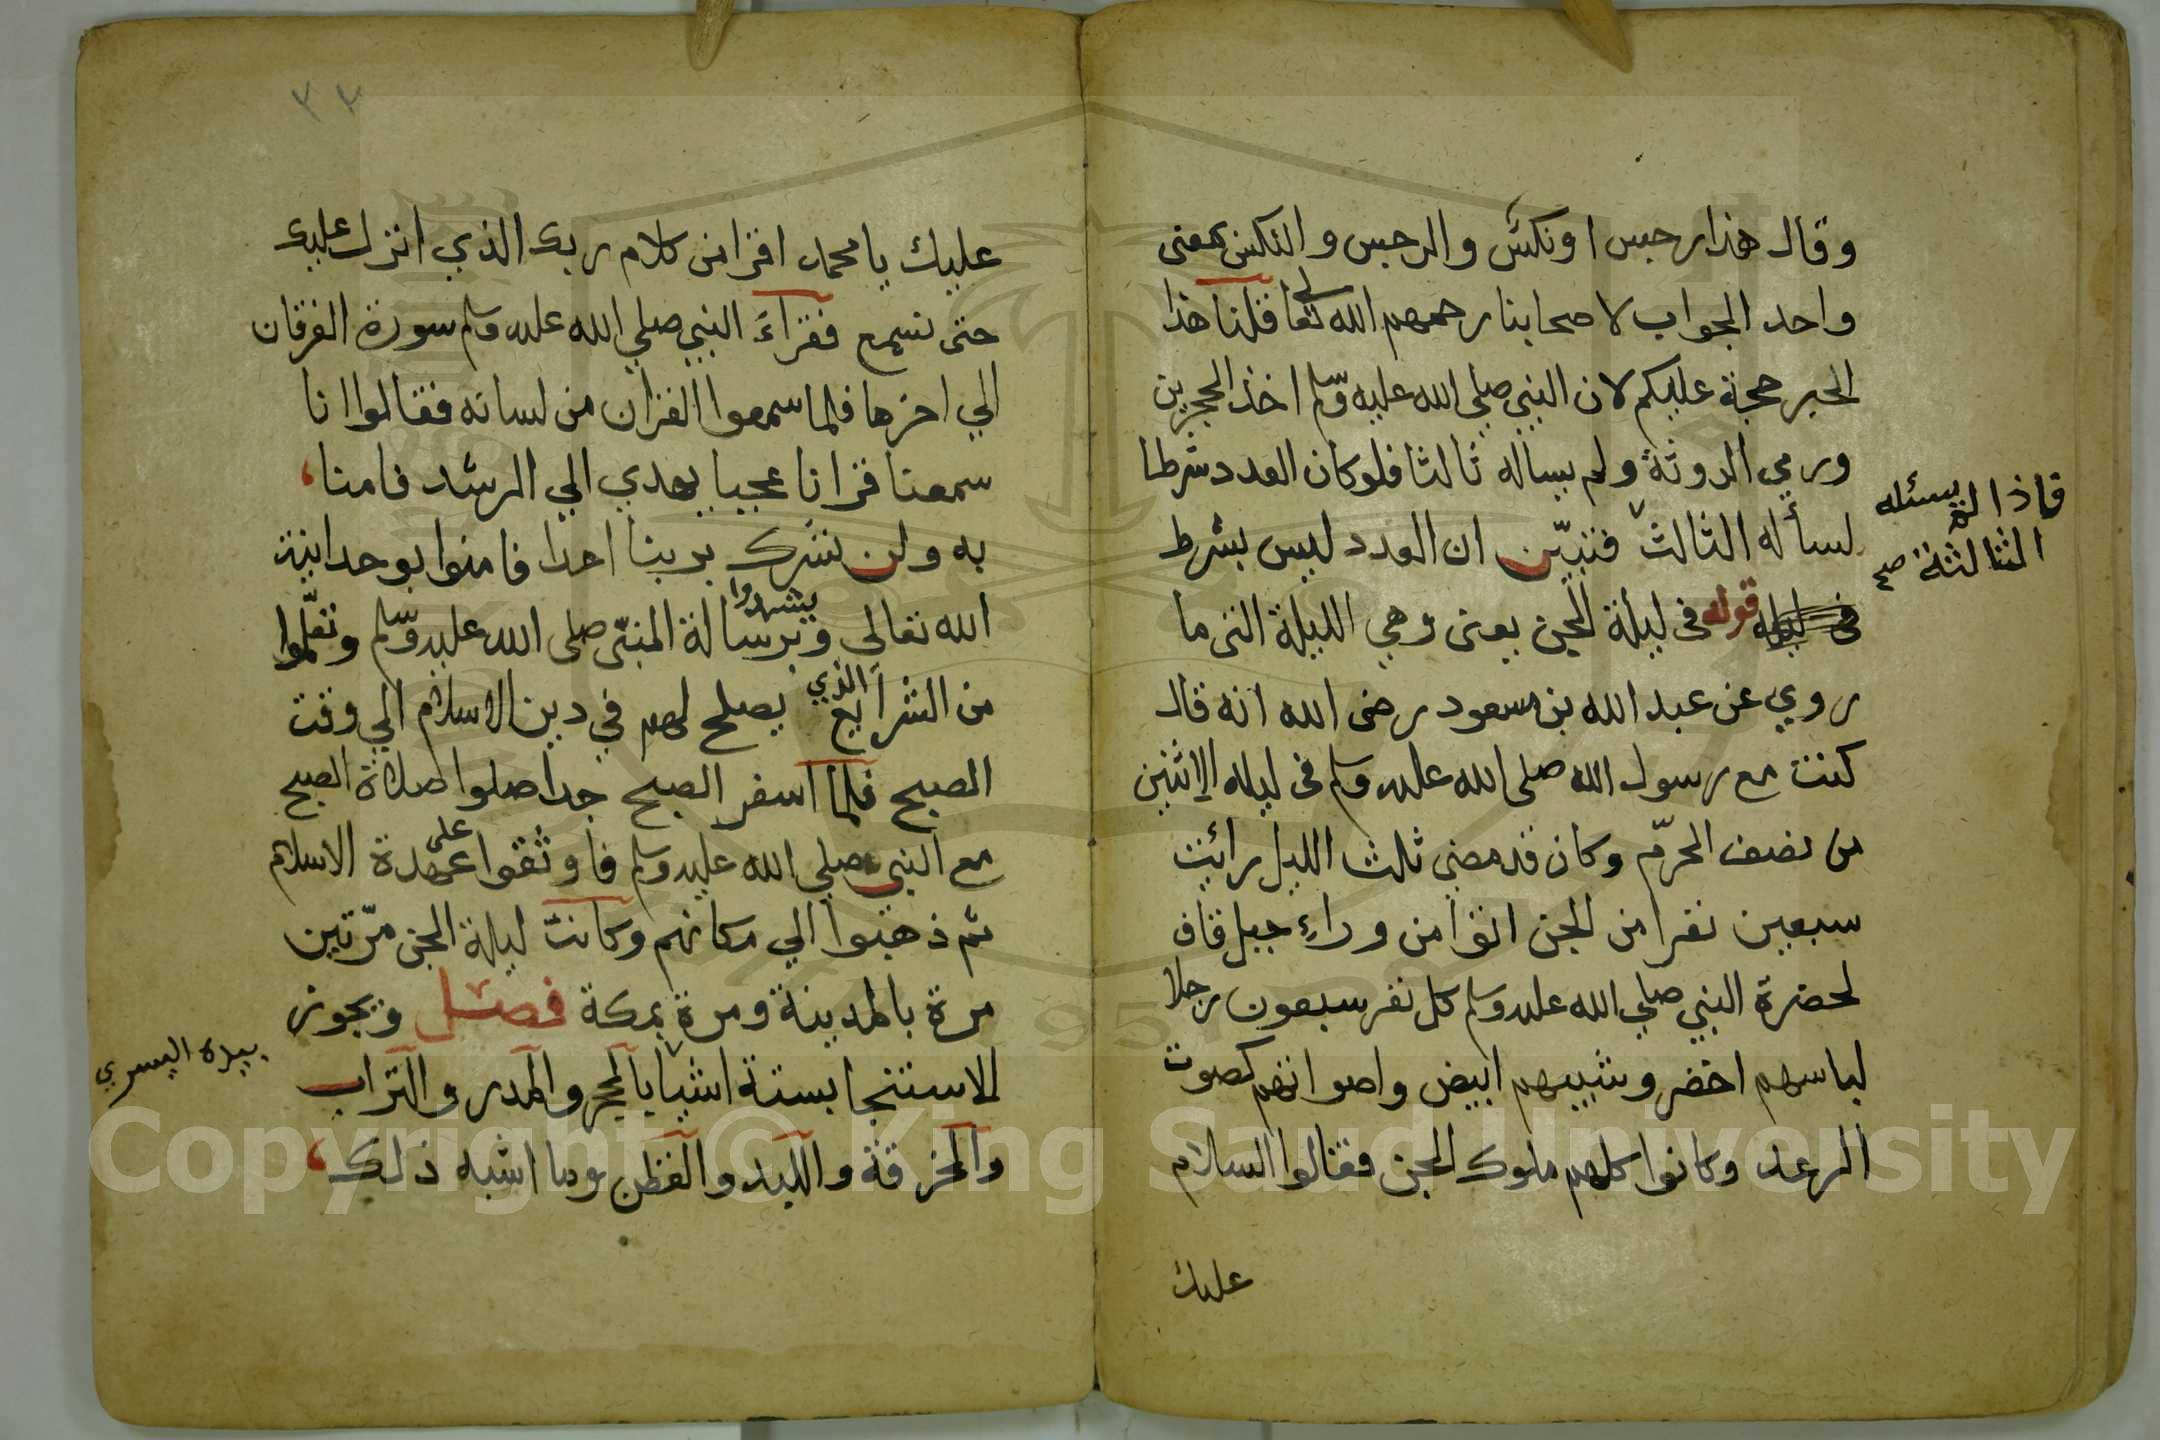 وقال هذا رجس او نكس والرجس والنكس بمعنى
واحد الجواب لاصحابنا رحمهم الله تعالى قلنا هذا
الخبر حجة عليكم لان النبي صلي الله عليه وسلم اخذ الحجرين
ورمي الروثة ولم يساله ثالثا فلو كان العدد شرطا
لسأله الثالث فتبيّن ان العدد ليس بشرط
فاذا لم يسئله
الثالثة صح
قوله فى ليلة الجن يعنى وهي الليلة التى ما
روي عن عبد الله بن مسعود رضى الله انه قال
كنت مع رسول الله صلى الله عليه وسلم فى ليلة الاثنين
من نصف المحرّم وكان قد مضى ثلث الليل رائيت
سبعين نفرا من الجن اتوا من وراء جبل قاف
لحضرة النبي صلي الله عليه وسلم كل نفر سبعون رجلا
لباسهم اخضر وشيبهم ابيض واصواتهم كصوت
الرعد وكانوا كلهم ملوك الجن فقالوا السلام
عليك
٣٣
عليك يا محمد اقرا من كلام ربك الذي انزل عليك
حتى نسمع فقراء النبي صلي الله عليه وسلم سورة الفرقان
الي اخرها فلما سمعوا القران من لسانه فقالوا انا
سمعنا قرانا عجيبا يهدي الي الرشد فامنا
به ولن نشرك بربنا احدا فامنوا بوحدانية
الله تعالي ويشهدوا برسالة النبي صلى الله عليه وسلم وتعلّموا
من الشرايع الذي يصلح لهم في دين الاسلام الي وقت
الصبح فلما اسفر الصبح جدا صلوا صلاة الصبح
مع النبي صلي الله عليه وسلم فاوثقوا على عهدة الاسلام
ثم ذهبوا الي مكانهم وكانت ليلة الجن مرّتين
مرة بالمدينة ومرة بمكة فصل ويجوز
الاستنجا بستة اشيا بالحجر والمدر والتراب
بيده اليسري
والخرقة واللبد والقطن وما اشبه ذلك
Copyright © King Saud University